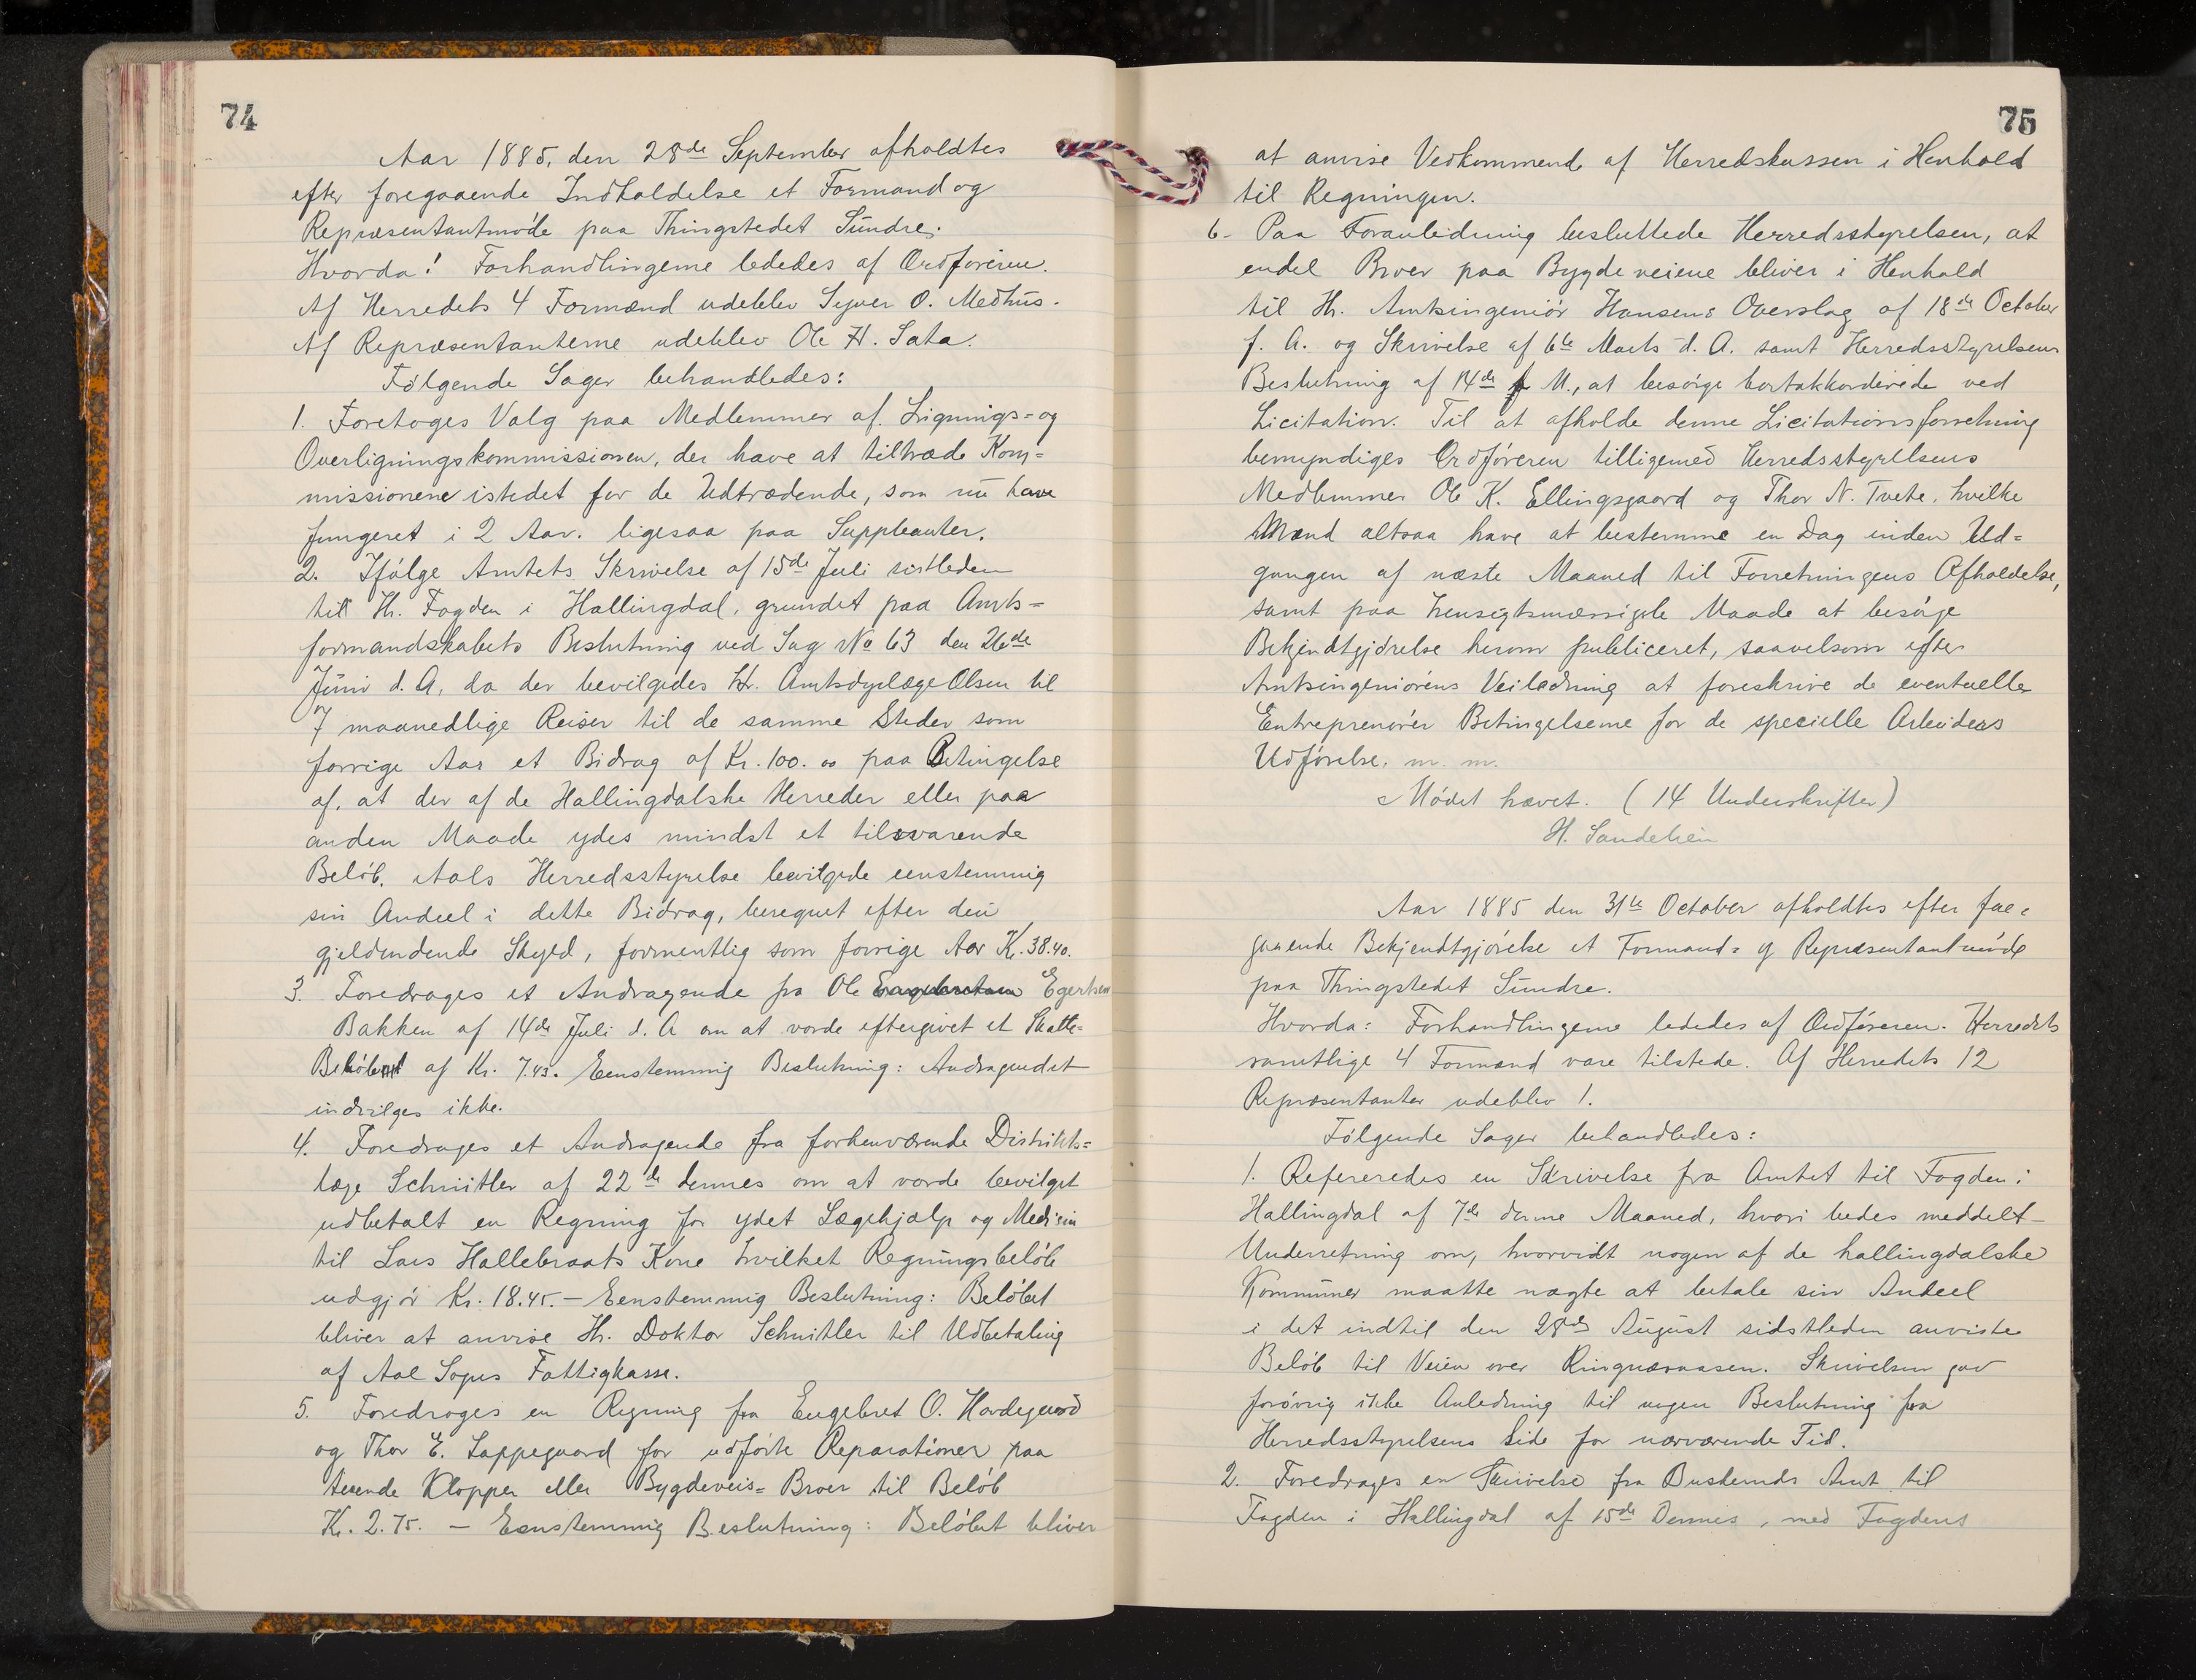 74
Aar 1885, den 28de September afholdtes
efter foregaaende Indkaldelse et Formand og
Repræsentantmøde paa Thingstedet Sundre.
Hvorda! Forhandlingerne lededes af Ordføreren.
Af Herredets 4 Formænd udeblev Syver O. Medhus.
Af Repræsentanterne udeblev Ole H. Sata.
Følgende Sager behandledes:
1. Foretoges Valg paa Medlemmer af Lignings= og
Overligningskommissionen, der have at tiltræde Kom=
missionene istedet for de Udtrædende, som nu have
fungeret i 2 Aar. ligesaa paa Suppleanter.
2. Ifølge Amtets Skrivelse af 15de Juli sistleden
til Hr. Fogden i Hallingdal, grundet paa Amts=
formandskabets Beslutning ved Sag No 63 den 26de
Juni d. A, da der bevilgedes Hr. Amtsdyrlæge Olsen til
7 maanedlige Reiser til de samme Steder som
forrige Aar et Bidrag af Kr. 100.00 paa Betingelse
af, at der af de Hallingdalske Herreder eller paa
anden Maade ydes mindst et tilsvarende
Beløb. Aals Herredsstyrelse bevilgede eenstemmig
sin Andeel i dette Bidrag, beregnet efter den
gjeldendende Skyld, formentlig som forrige Aar K. 38.40.
3. Foredroges et Andragende fra Ole Egertsen
Bakken af 14de Juli d. A om at vorde eftergivet et Skatte=
Beløb af Kr. 7.43. Eenstemmig Beslutning: Andragendet
indvilges ikke.
4. Foredroges et Andragende fra forhenværende Distrikts=
læge Schnitler af 22de dennes om at vorde bevilget
udbetalt en Regning for ydet Lægehjælp og Medisin
til Lars Hallebraats Kone hvilket Regningsbeløb
udgjør Kr. 18.45. — Eenstemmig Beslutning: Beløbet
bliver at anvise Hr. Doktor Schnitler til Udbetaling
af Aal Sogns Fattigkasse.
5. Foredroges en Regning fra Engebret O. Hardegaard
og Thor E. Lappegaard for udførte Reparationer paa
Klopper eller Bygdeveis= Broer til Beløb
Kr. 2.75. — Eenstemmig Beslutning: Beløbet bliver
75
at anvise Vedkommende af Herredskassen i Henhold
til Regningen.
6- Paa Foranledning besluttede Herredsstyrelsen, at
endel Broer paa Bygdeveiene bliver i Henhold
til Hr. Amtsingeniør Hansens Overslag af 18de October
f. A. og Skrivelse af 6te Marts d. A. samt Herredsstyrelsens
Beslutning af 14de f. M., at besørge bortakkorderede ved
Licitation. Til at afholde denne Licitationsforretning
bemyndiges Ordføreren tilligemed Herredsstyrelsens
Medlemmer Ole K. Ellingsgaard og Thor N. Tvete, hvilke
Mænd altsaa have at bestemme en Dag inden Ud=
gangen af næste Maaned til Forretningens Afholdelse,
samt paa hensigtsmæssigste Maade at besørge
Bekjendtgjørelse herom publiceret, saavelsom efter
Amtsingeniørens Veiledning at foreskrive de eventuelle
Entreprenører Betingelserne for de specielle Arbeiders
Udførelse. m. m.
Mødet hævet. (14 Underskrifter)
H. Sandelien
Aar 1885 den 31te October afholdtes efter fore=
gaaende Bekjendtgjørelse et Formand= og Repræsentantmøde
paa Thingstedet Sundre.
Hvorda: Forhandlingerne lededes af Ordføreren. Herredets
samtlige 4 Formænd vare tilstede. Af Herredets 12
Repræsentanter udeblev 1.
Følgende Sager behandledes:
1. Refereredes en Skrivelse fra Amtet til Fogden i
Hallingdal af 7de denne Maaned, hvori bedes meddelt
Underretning om, hvorvidt nogen af de hallingdalske
Kommuner maatte nægte at betale sin Andeel
i det indtil den 28de August sidstleden anviste
Beløb til Veien over Ringnæsaasen. Skrivelsen gav
forøvrig ikke Anledning til nogen Beslutning fra
Herredsstyrelsens Side for nærværende Tid.
2. Foredroges en Skrivelse fra Buskeruds Amt til
Fogden i Hallingdal af 15de Dennes, med Fogdens